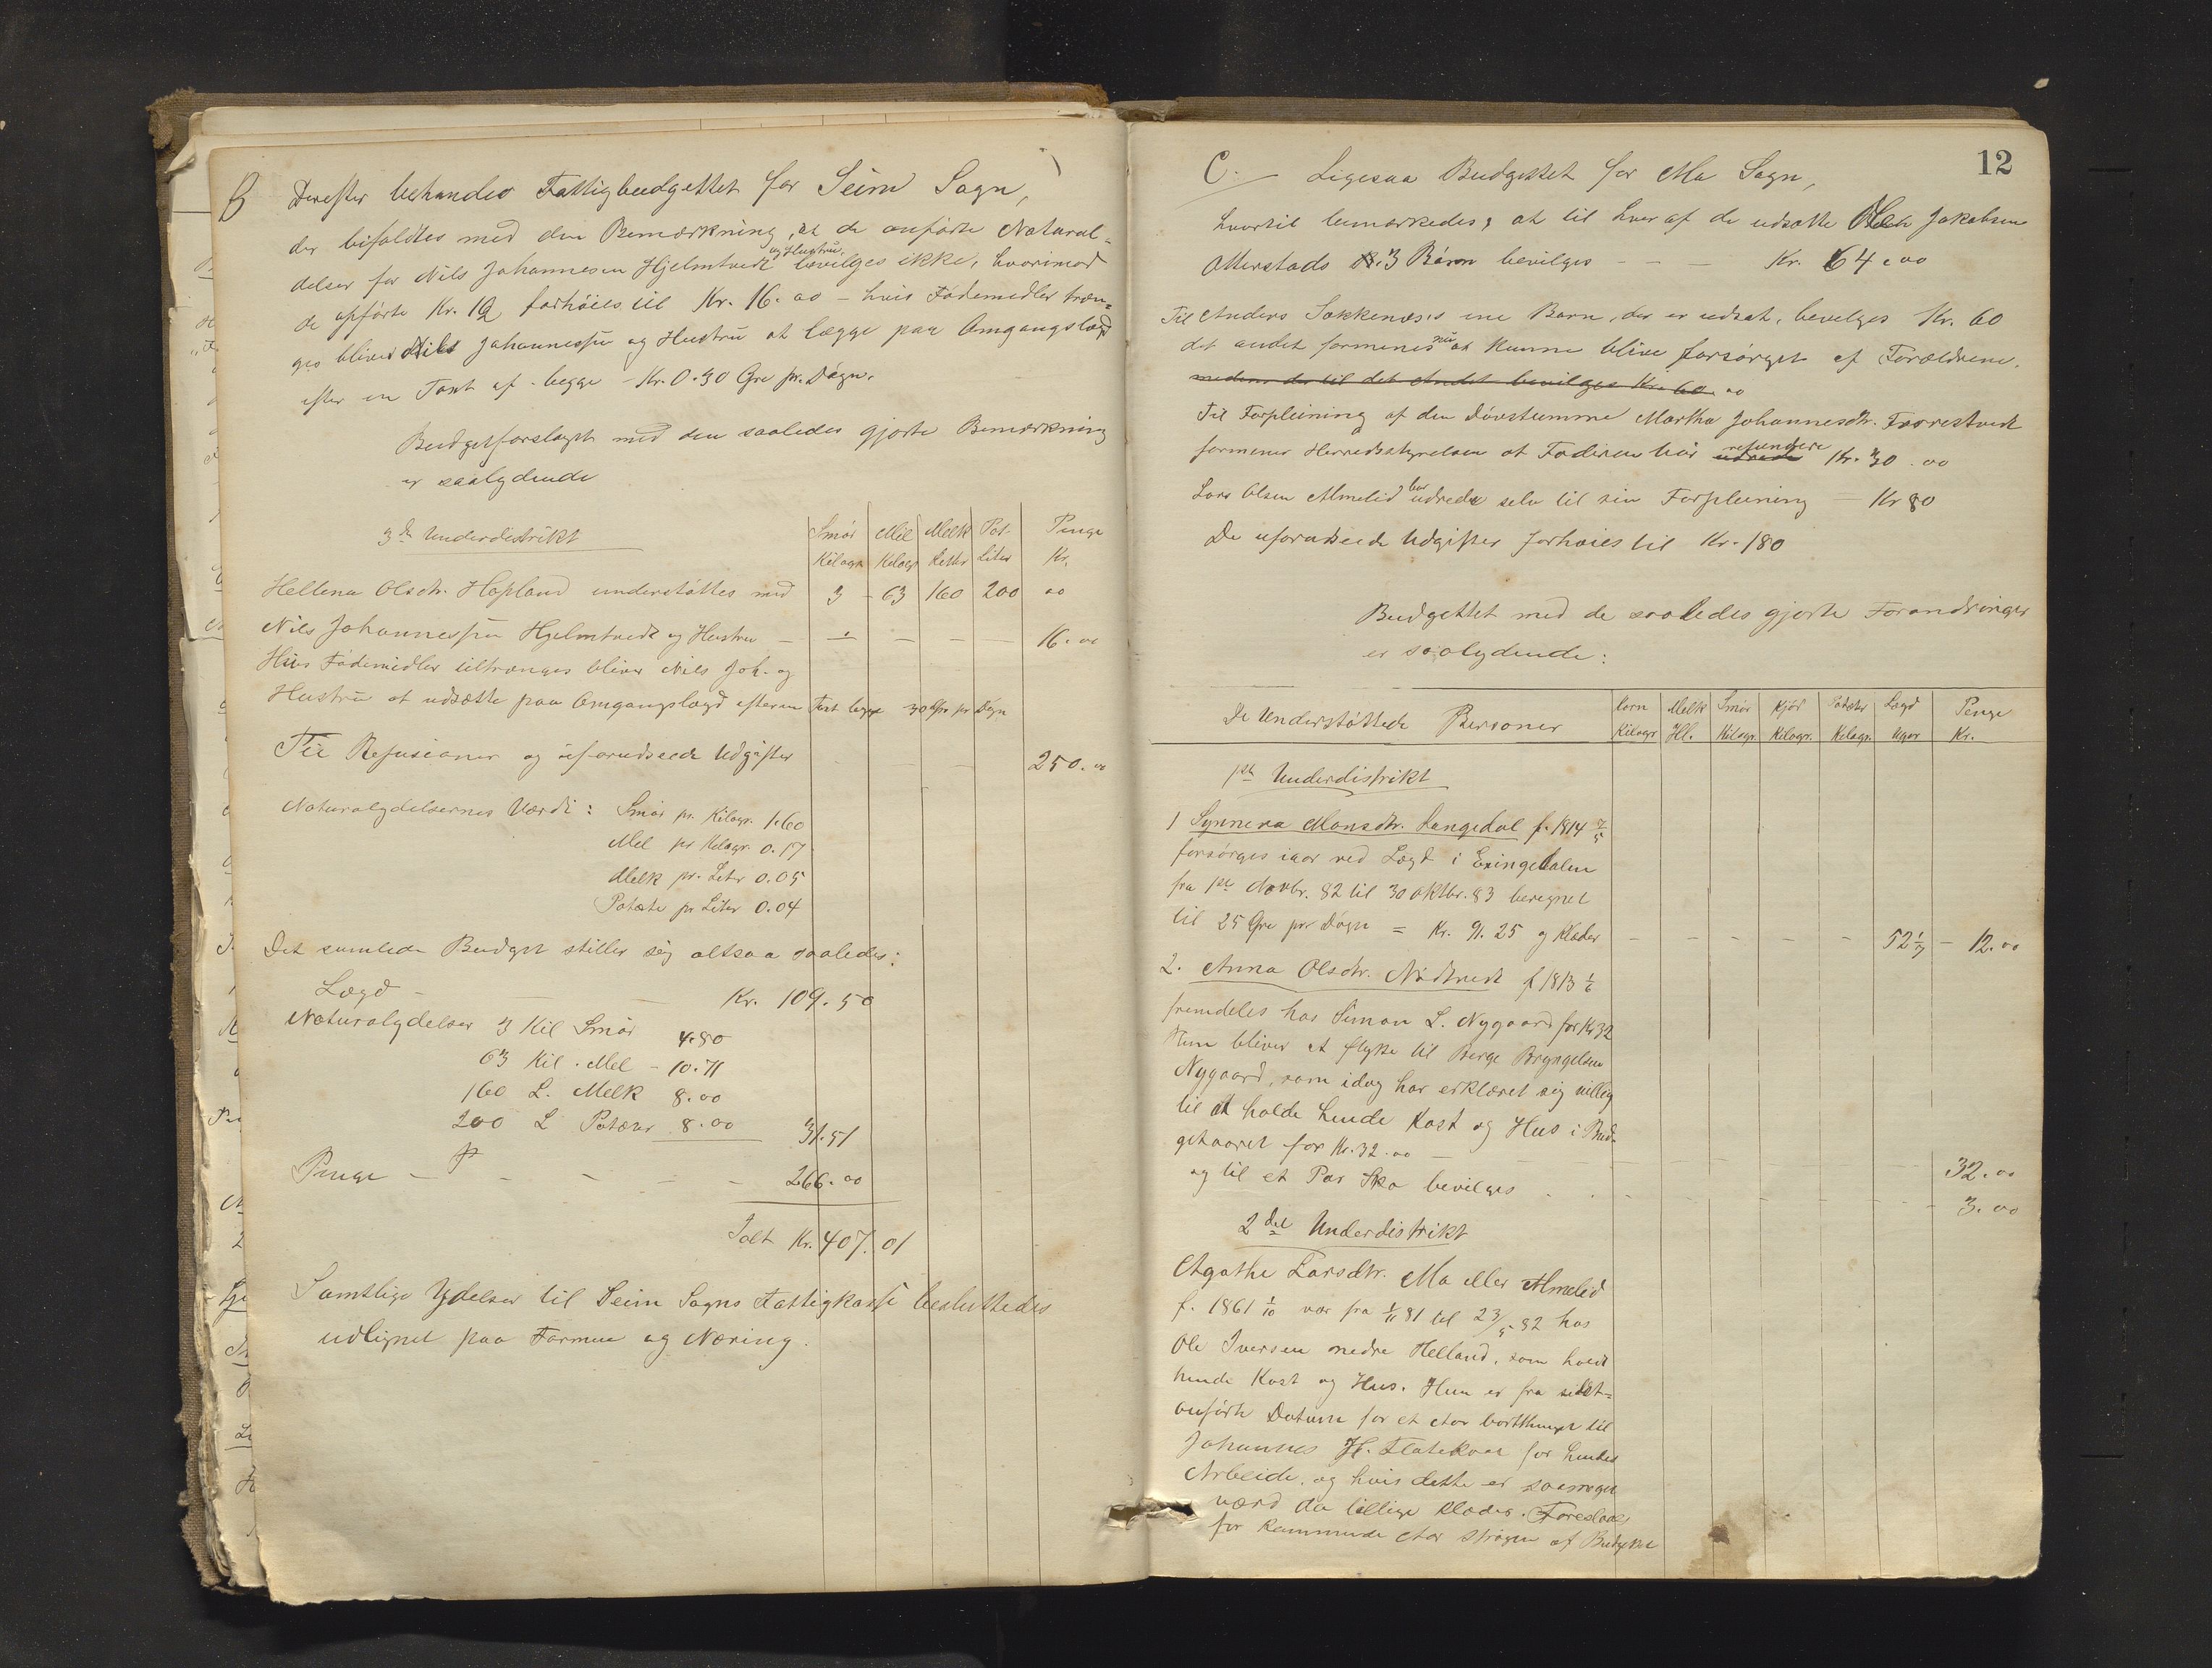 B Derefter behandles Fattigbudgettet for Seim Sogn,
der bifaldtes med den Bemærkning, at de anførte Natural-
delser for Nils Johannesen Hjelmtvedt og Hustru bevilges ikke, hvorimod
de opførte Kr. 12 forhøies til Kr. 16.00 – hvis Fødemidler træn-
ges bliver Nils Johannessen og Hustru at lægge paa Omgangslægd
efter en Taxt af begge – Kr. 0.30 Øre pr. Døgn.
Budgetforslaget med den saaledes gjorte Bemærkning
er saalydende
3de Underdistrikt Smør Mel Melk Pot. Penge
Kilogr. Kilogr. Letter Liter Kr.
Hellena Olsdtr. Hopland understøttes med 3 – 63 160 200 00
Nils Johannessen Hjelmtvedt og Hustru – – – – – 16.00
Hvis Fødemidler tiltrænges bliver Nils Joh. og
Hustru at udsætte paa Omgangslægd efter en Taxt begge 30 Øre pr Døgn
Til Refusioner og uforudseede Udgifter – – – 250.00
Naturalydelsernes Værdi: Smør pr. Kilogr. 1.60
Mel pr Kilogr. 0.17
Melk pr. Liter 0.05
Potete pr Liter 0.04
Det samlede Budget stiller sig altsaa saaledes:
Lægd – – – Kr. 109.50
Naturalydelser 3 Kil Smør 4.80
63 Kil. Mel – 10.71
160 L. Melk 8.00
200 L Poteter 8.00 31.51
Penge – – – – – 266.00
Ialt Kr. 407.01
Samtlige Ydelser til Seim Sogns Fattigkasse besluttedes
udlignet paa Formue og Næring.
12
C. Ligesaa Budgettet for Mo Sogn,
hvortil bemærkedes, at til hver af de udsatte Ole Jakobsen
Otterstads 3 Børn bevilges – – – Kr. 64.00
Til Anders Sakkenæs's ene Barn, der er udsat, bevilges Kr. 60
det andet formenes nu at kunne blive forsørget af Forældrene.
medens der til det Andet bevilges Kr. 60.00
Til Forpleining af den døvstumme Martha Johannesdtr. Forrestvedt
formener Herredsstyrelsen at Faderen bør udrede refundere Kr. 30.00
Lars Olsen Almelid bør udrede selv til sin Forpleining – Kr 80
De uforudseede Udgifter forhøies til Kr. 180
Budgettet med de saaledes gjorte Forandringer
er saalydende:
De Understøttede Personer Korn Melk Smør Kjød Poteter Lægd Penge
Kilogr Hl. Kilogr. Kilogr. Kilogr. Uger Kr.
1ste Underdistrikt
1 Synneva Monsdtr. Langedal f. 1814 7/5
forsørges iaar ved Lægd i Exingedalen
fra 1ste Novbr. 82 til 30 Oktbr. 83 beregnet
til 25 Øre pr Døgn = Kr. 91.25 og Klæder – – – – – 52 1/7 – 12.00
2. Anna Olsdtr. Nødtvedt f 1813 1/6
fremdeles hos Simon L. Nygaard for Kr 32
Hun bliver at flytte til Berge Bryngelsen
Nygaard, som idag har erklæret sig villig
til at holde hende Kost og Hus i Bud-
getaaret for Kr. 32.00 – 32.00
og til et Par Sko bevilges – 3.00
2det Underdistrikt
Agathe Larsdtr. Mo eller Almelid
f. 1861 1/10 var fra 1/11 81 til 23/5 82 hos
Ole Iversen nedre Helland, som holdt
hende Kost og Hus. Hun er fra sidst-
anførte Datum for et Aar borttinget til
Johannes H. Flatekvaal for hendes
Arbeide, og hvis dette er saameget
værd da tillige Klæder. Foreslaaes
for kommende Aar strøgen af Budgettet